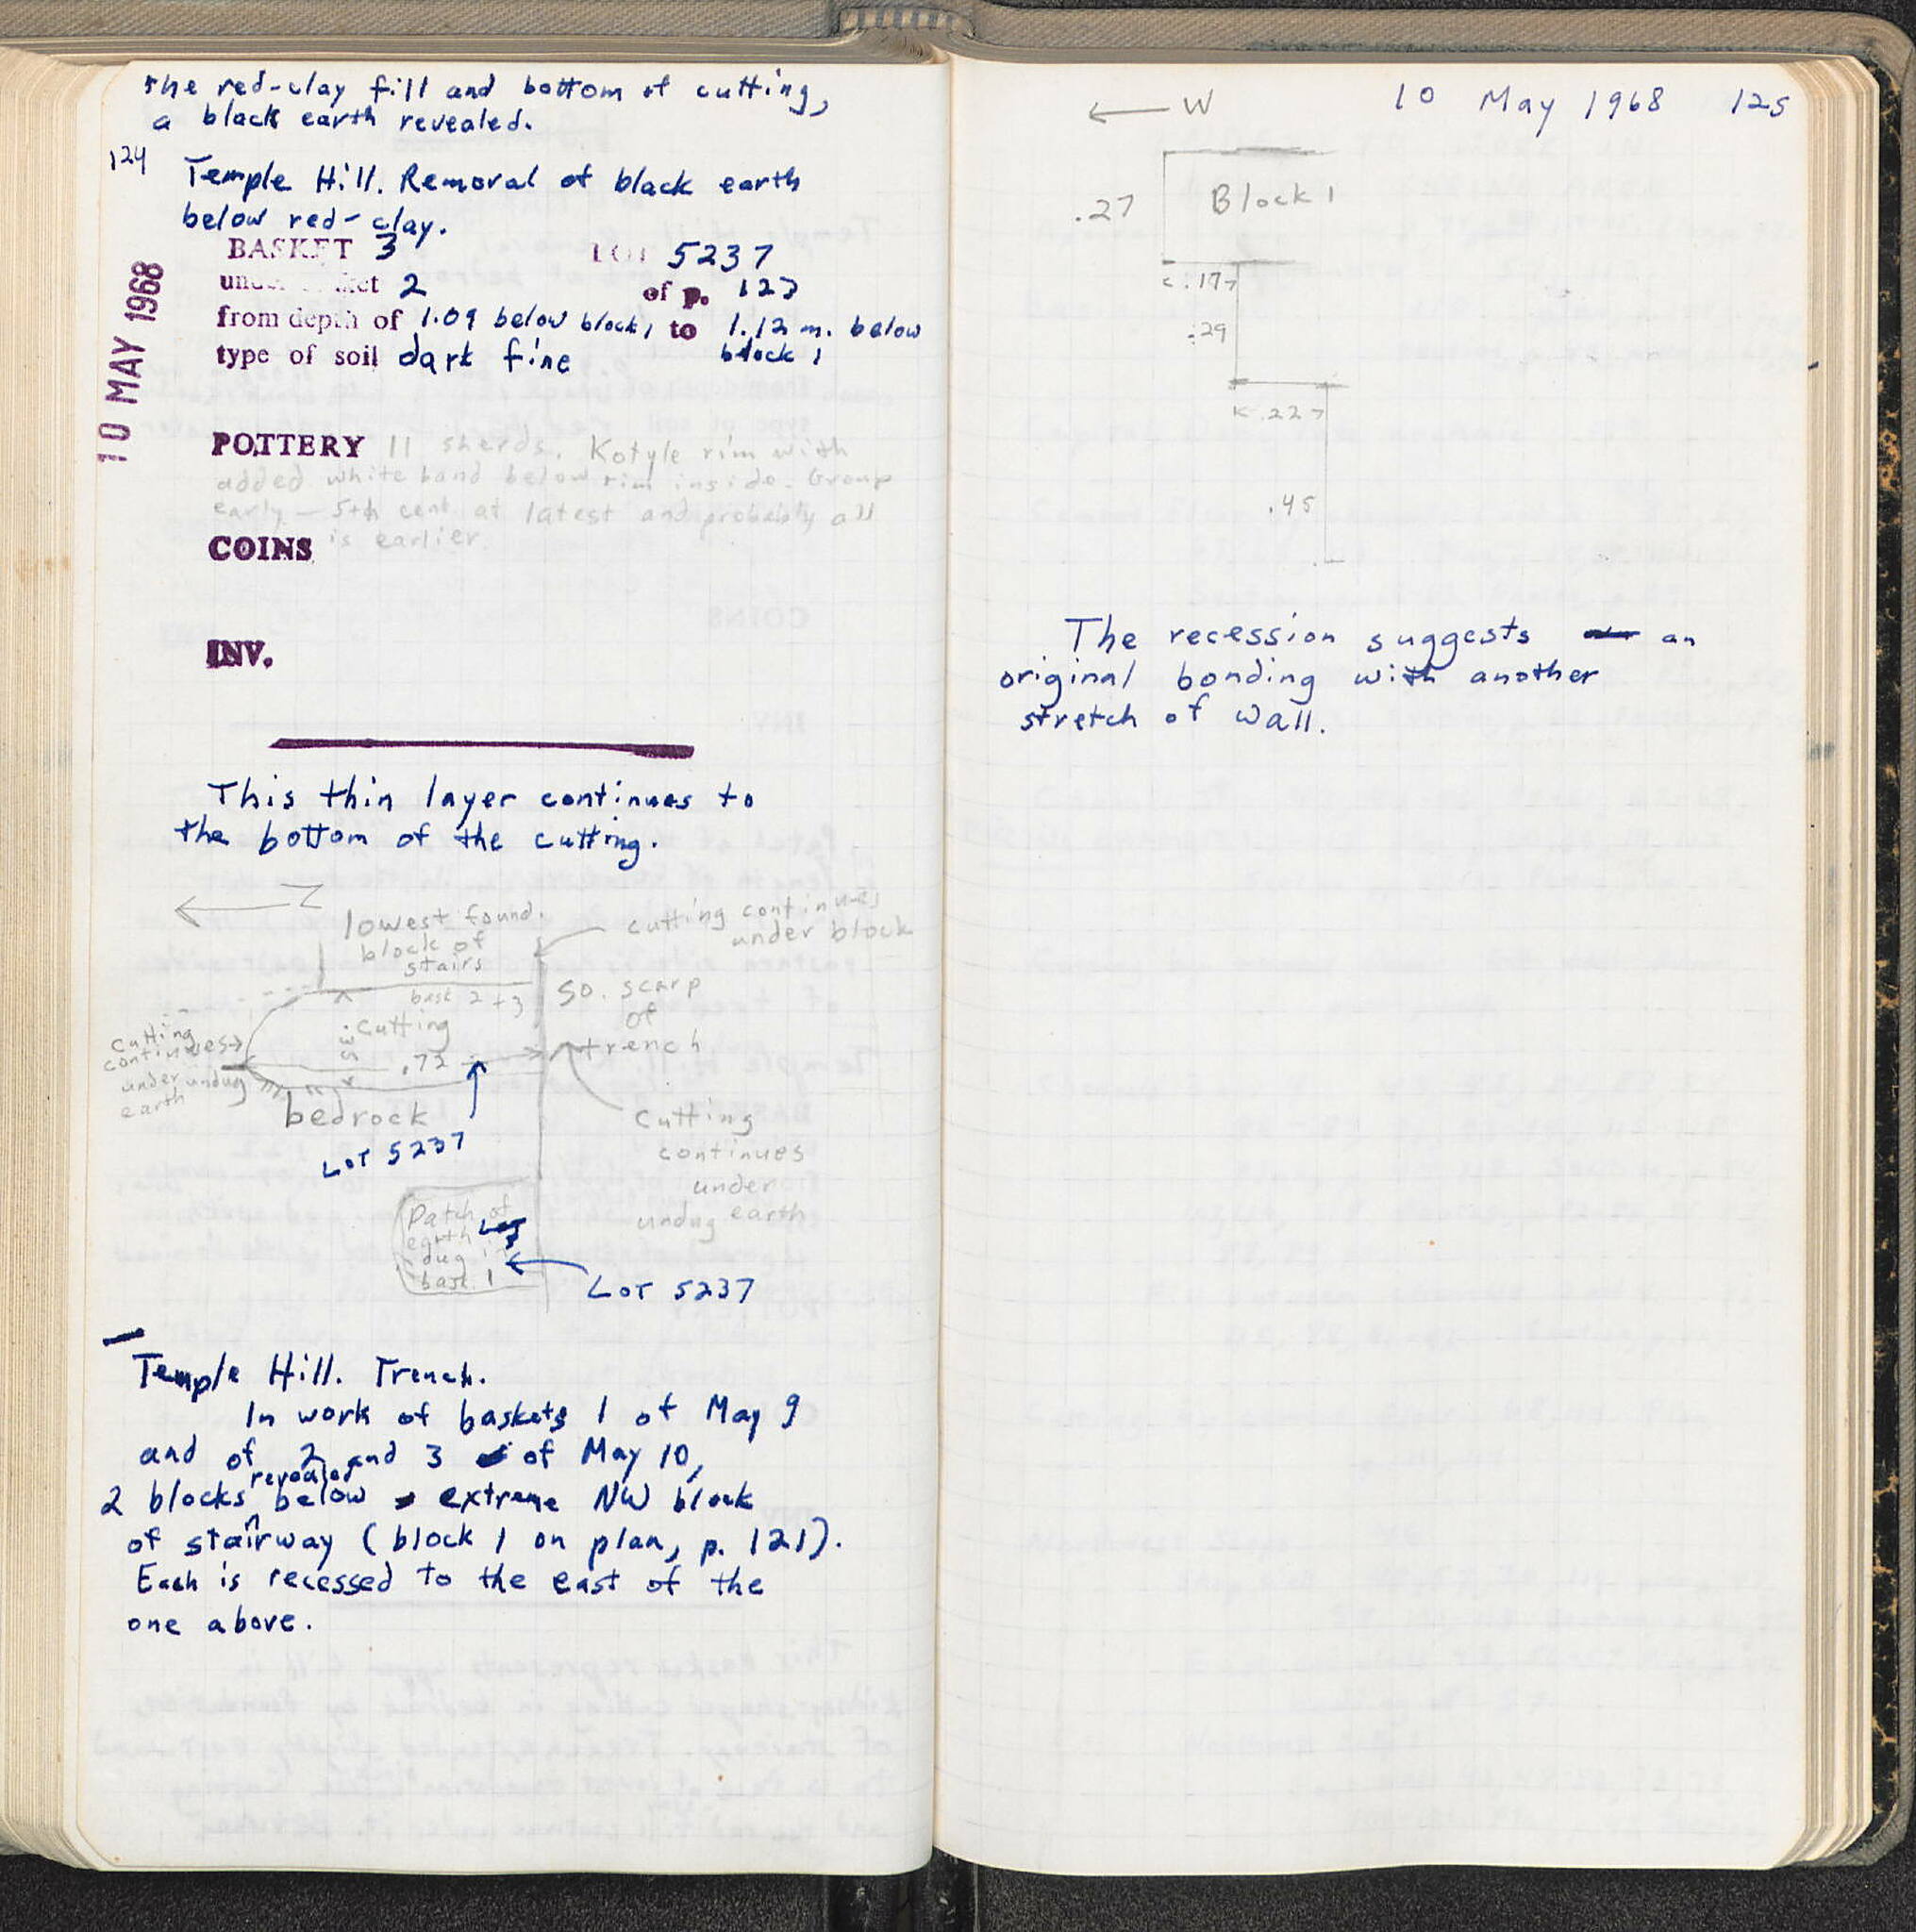 the red-clay fill and bottom of cutting,
a black earth revealed.
124
Temple Hill. Removal of black earth
below red-clay.
10 MAY 1968
BASKET 3 LOT 5237
under basket 2 of p. 123
from depth of 1.09 below block 1 to 1.12 m. below
block 1
type of soil dark fine
POTTERY 11 sherds. Kotyle rim with
added white band below rim inside. Group
early — 5th cent at latest and probably all
is earlier.
COINS
INV.
This thin layer continues to
the bottom of the cutting.
N
lowest found.
block of
stairs
cutting continues
under block
bask 2 + 3
So. scarp
of
trench
Cutting
.72
cutting
continues
under undug
earth
bedrock
LOT 5237
Cutting
continues
under
undug earth
Patch of
earth
dug in
bask. 1
LOT 5237
Temple Hill. Trench.
In work of baskets 1 of May 9
and of 2 and 3 of May 10,
2 blocks revealed below extreme NW block
of stairway (block 1 on plan, p. 121).
Each is recessed to the east of the
one above.
W
10 May 1968 125
Block 1
.27
.17
.29
.22
.45
The recession suggests an
original bonding with another
stretch of wall.